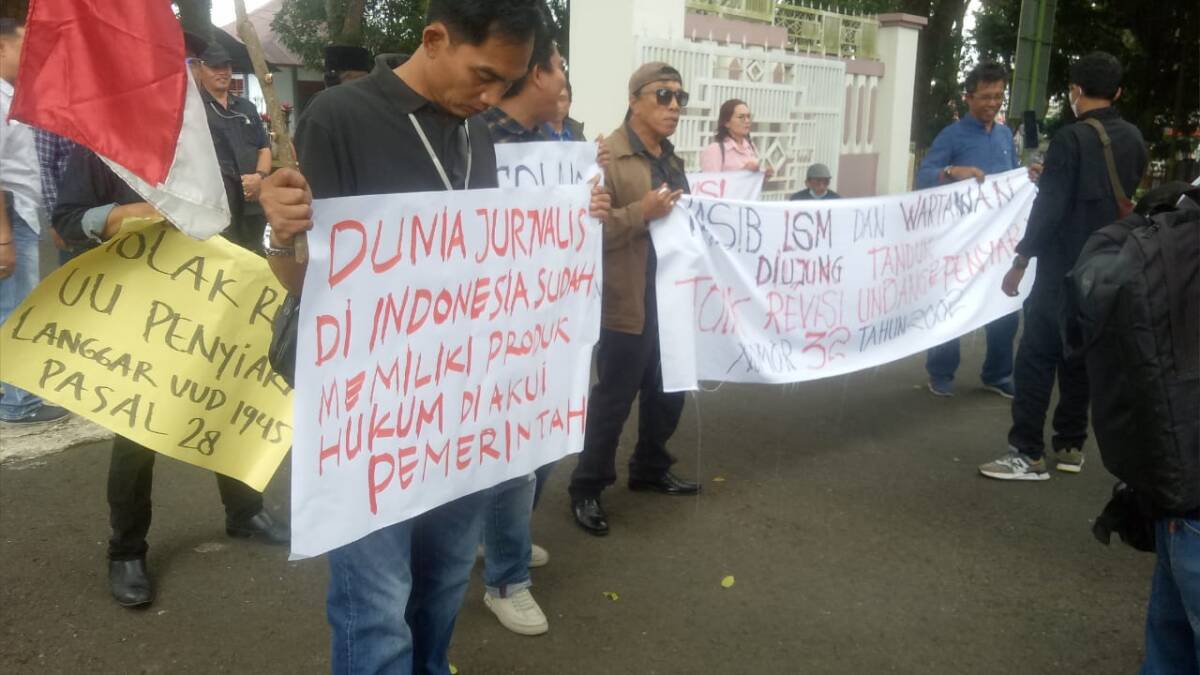 OLAK R
UU PENYIAR
LANGGAR UUD 1945
PASAL 28
DUNIA JURNALIS
DI INDONESIA SUDAH
MEMILIKI PRODUK
HUKUM DI AKUI
PEMERINTAH
ASIB LSM DAN WARTAWAN
DIUJUNG TANDUK
REVISI UNDANG
36 TAHUN 2002